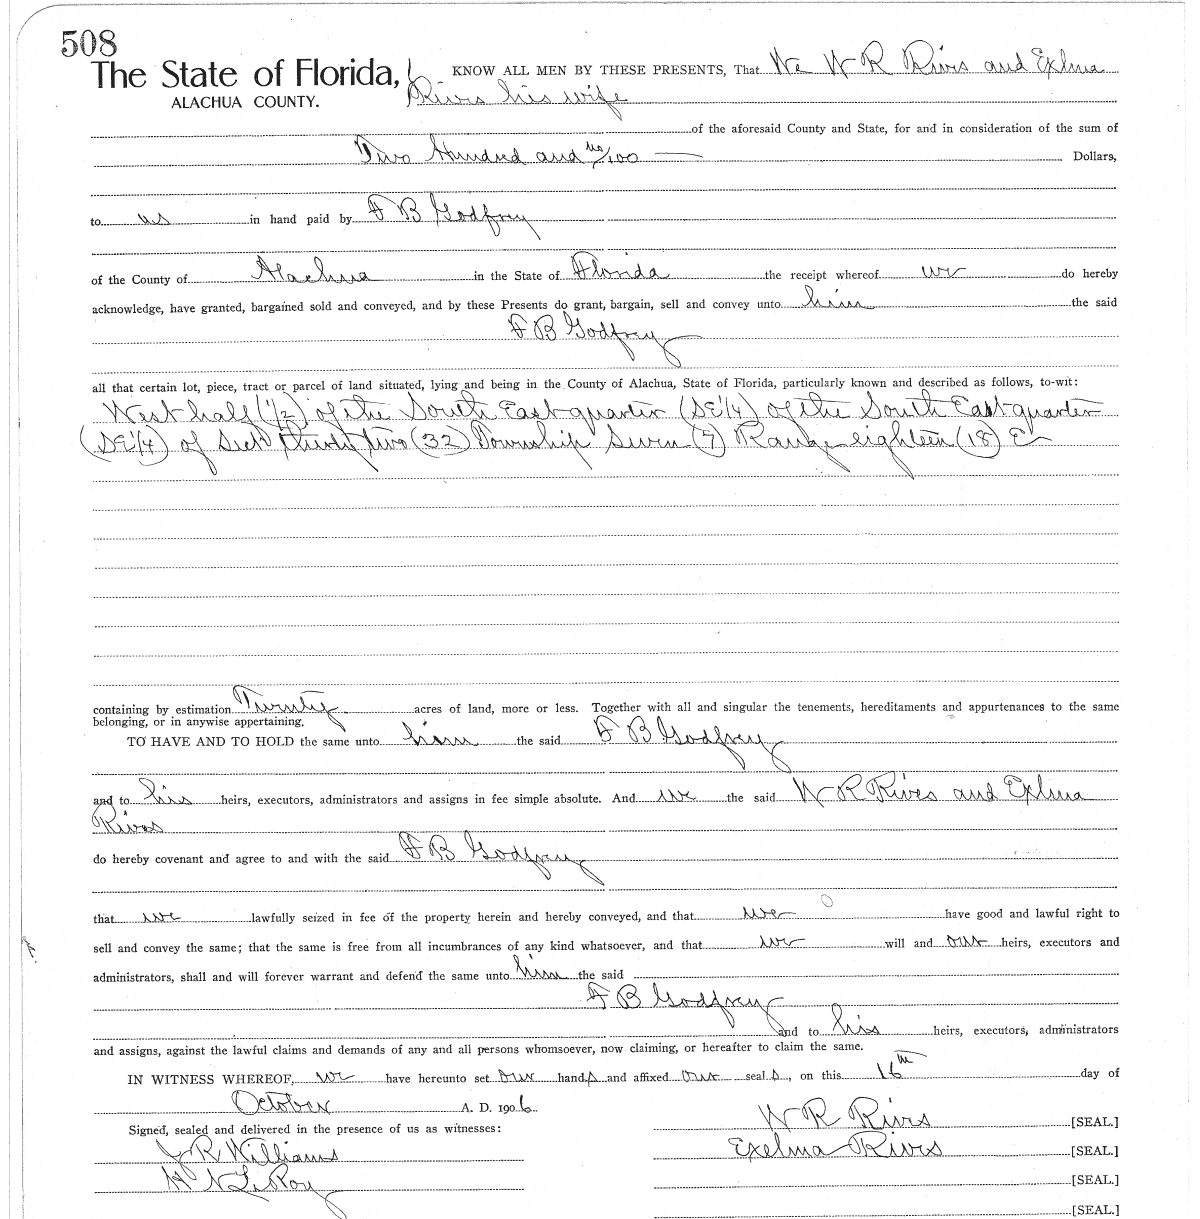 508
The State of Florida, KNOW ALL MEN BY THESE PRESENTS, That We W R Rives and Exelma
ALACHUA COUNTY. Rives his wife
of the aforesaid County and State, for and in consideration of the sum of
Two Hundred and no/100 Dollars,
to us in hand paid by F B Godfrey
of the County of Alachua in the State of Florida the receipt whereof we do hereby
acknowledge, have granted, bargained sold and conveyed, and by these Presents do grant, bargain, sell and convey unto him the said
F B Godfrey
all that certain lot, piece, tract or parcel of land situated, lying and being in the County of Alachua, State of Florida, particularly known and described as follows, to-wit:
West half (1/2) of the South East quarter (SE1/4) of the South East quarter
(SE1/4) of Sect thirty two (32) Township Seven (7) Range eighteen (18) E
containing by estimation Twenty acres of land, more or less. Together with all and singular the tenements, hereditaments and appurtenances to the same
belonging, or in anywise appertaining.
TO HAVE AND TO HOLD the same unto him the said F B Godfrey
and to his heirs, executors, administrators and assigns in fee simple absolute. And we the said W R Rives and Exelma
Rives
do hereby covenant and agree to and with the said F B Godfrey
that we lawfully seized in fee of the property herein and hereby conveyed, and that we have good and lawful right to
sell and convey the same; that the same is free from all incumbrances of any kind whatsoever, and that we will and our heirs, executors and
administrators, shall and will forever warrant and defend the same unto him the said
F B Godfrey
and to his heirs, executors, administrators
and assigns, against the lawful claims and demands of any and all persons whomsoever, now claiming, or hereafter to claim the same.
IN WITNESS WHEREOF, we have hereunto set our hands and affixed our seals, on this 16th day of
October A. D. 1906
W R Rives [SEAL.]
Signed, sealed and delivered in the presence of us as witnesses:
J R Williams Exelma Rives [SEAL.]
H N LeRoy [SEAL.]
[SEAL.]